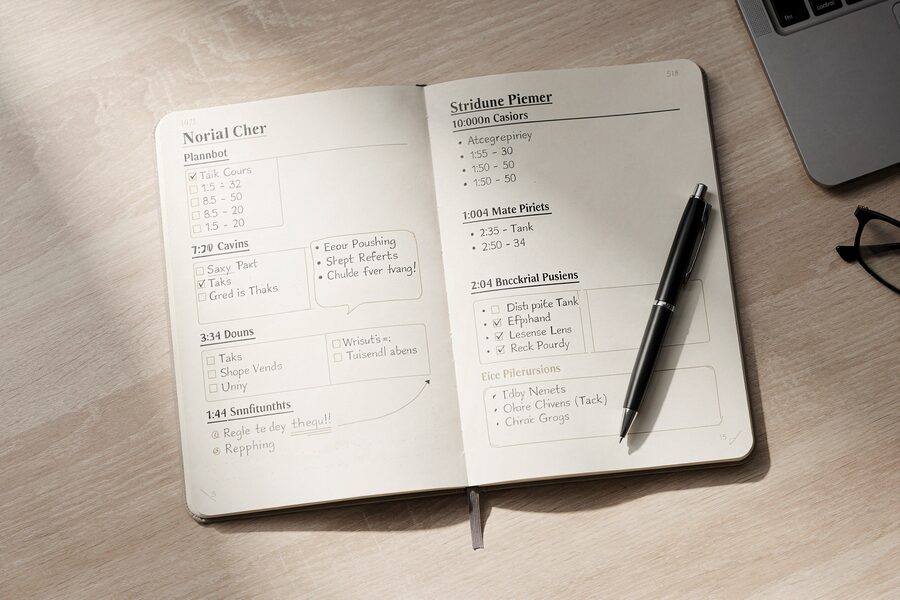 1975
Norial Cher
Plannbot
Taik Cours
1:5 ÷ 32
8.5 - 50
8.5 - 20
1.5 - 20
Cavins
Saxy Part
Taks
Gred is Thaks
Eeour Poushing
Srept Referts
Chulde fver tvang!
3:34 Douns
Taks
Shope Vends
Uniny
Wrisut's =:
Tuisendl abens
1:44 Snnfitunthts
Regle te dey thequ!!
Repphing
518
Stridune Piemer
10:000n Casiors
Atcegrepiriey
1:55 - 30
1:50 - 50
1:50 - 50
1:004 Mate Piriets
2:35 - Tank
2:50 - 34
2:04 Bncckrial Pusiens
Disti poite Tank
Efphand
Lesense Lens
Reck Pourdy
Eice Pilerursions
Idby Nenets
Ohore Chivens (Tack)
Chirair Grogs
15
fn
control